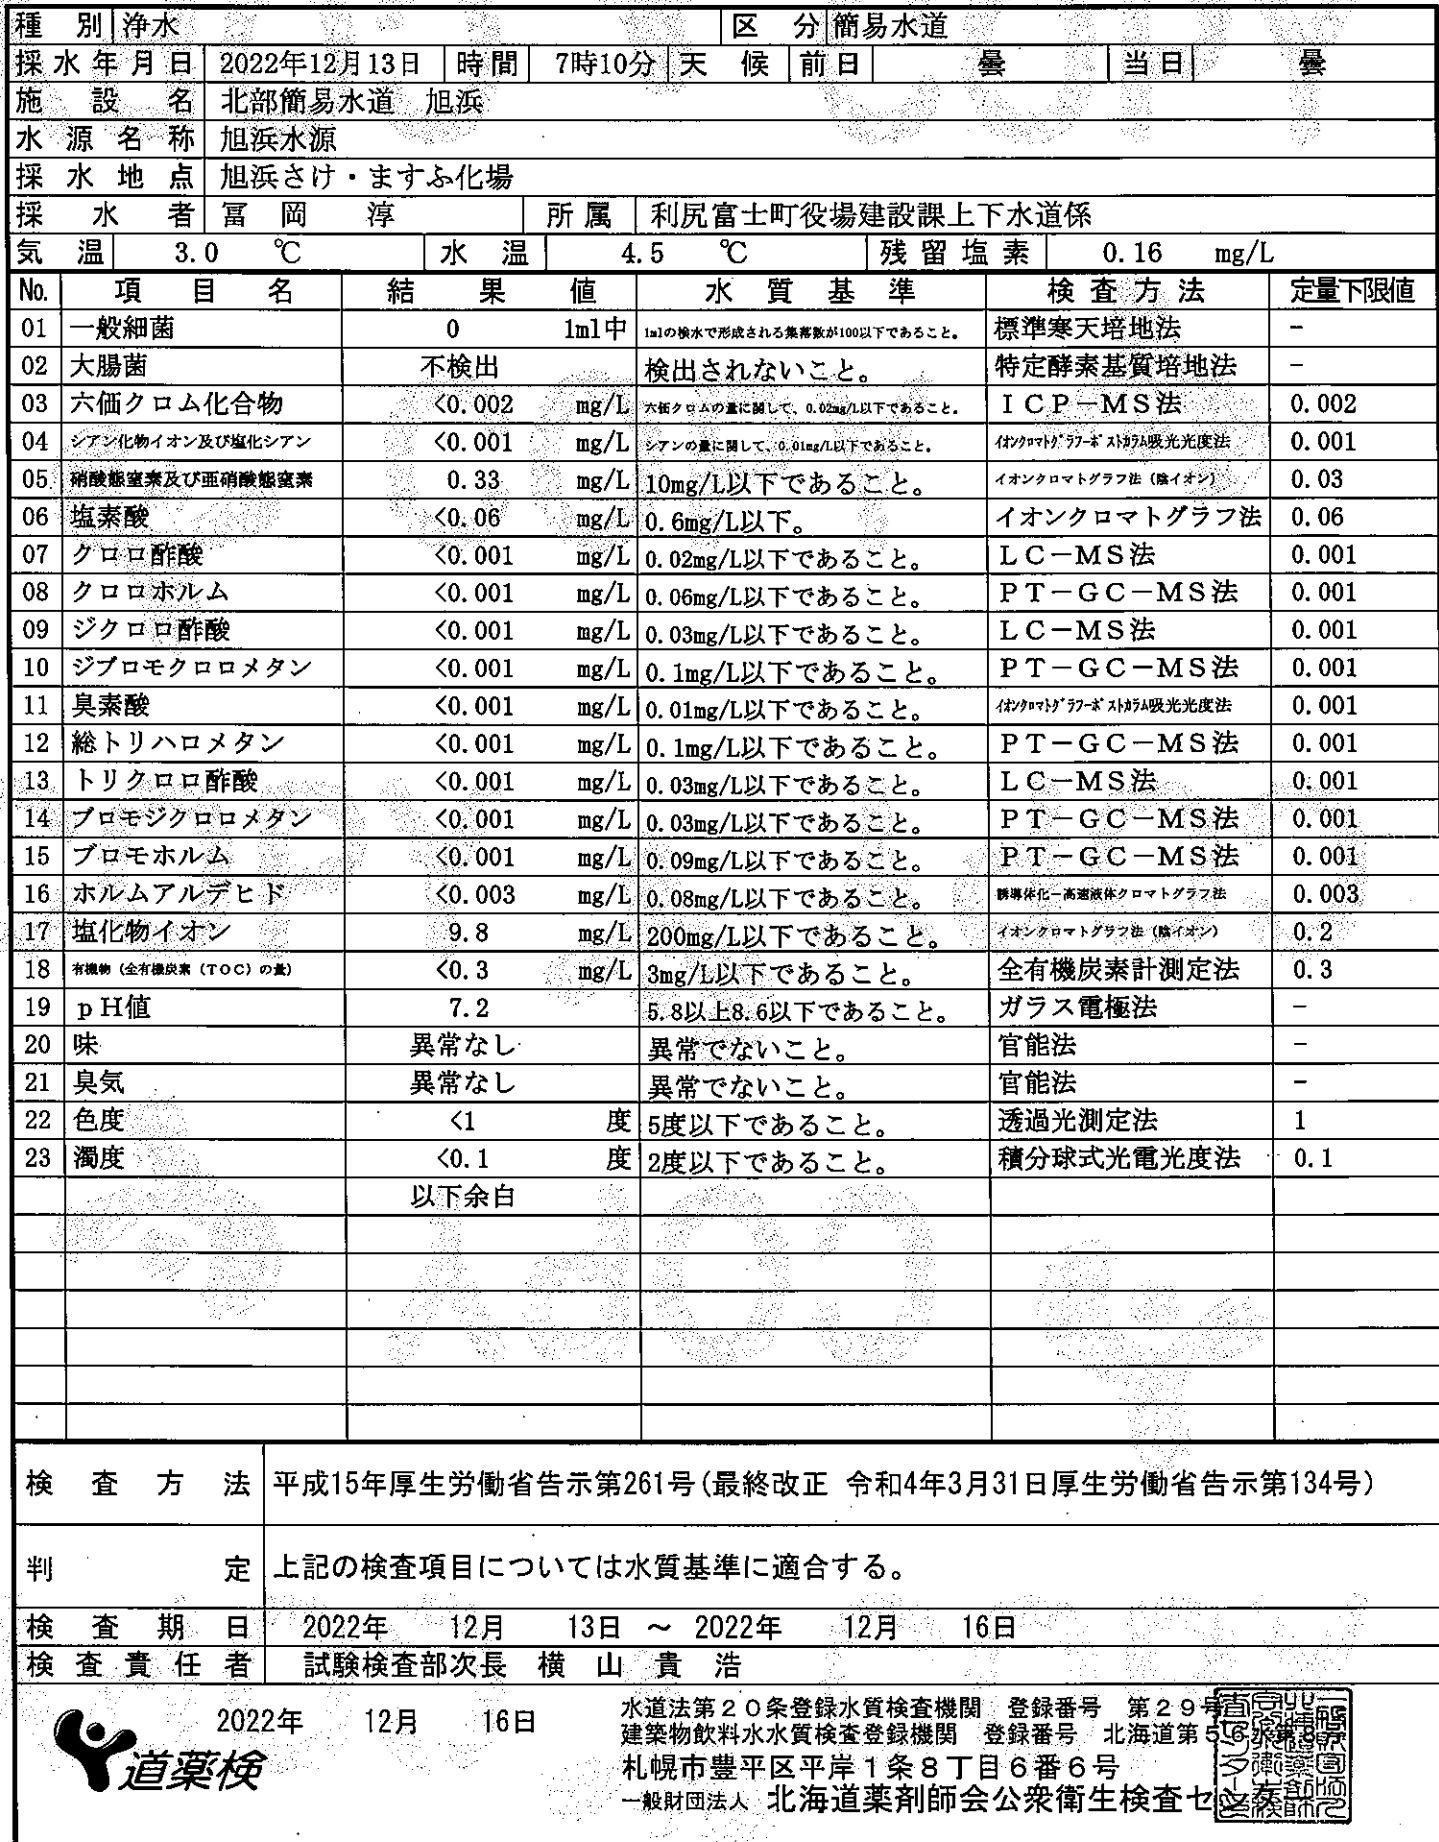 種別 浄水 区分 簡易水道
採水年月日 2022年12月13日 時間 7時10分 天候 前日 曇 当日 曇
施設名 北部簡易水道 旭浜
水源名称 旭浜水源
採水地点 旭浜さけ・ますふ化場
採水者 冨岡 淳 所属 利尻富士町役場建設課上下水道係
気温 3.0 ℃ 水温 4.5 ℃ 残留塩素 0.16 mg/L
No. 項目名 結果値 水質基準 検査方法 定量下限値
01 一般細菌 0 1ml中 1mlの検水で形成される集落数が100以下であること。 標準寒天培地法 −
02 大腸菌 不検出 検出されないこと。 特定酵素基質培地法 −
03 六価クロム化合物 <0.002 mg/L 六価クロムの量に関して、0.02mg/L以下であること。 ICP−MS法 0.002
04 シアン化物イオン及び塩化シアン <0.001 mg/L シアンの量に関して、0.01mg/L以下であること。 イオンクロマトグラフ−ポストカラム吸光光度法 0.001
05 硝酸態窒素及び亜硝酸態窒素 0.33 mg/L 10mg/L以下であること。 イオンクロマトグラフ法（陰イオン） 0.03
06 塩素酸 <0.06 mg/L 0.6mg/L以下。 イオンクロマトグラフ法 0.06
07 クロロ酢酸 <0.001 mg/L 0.02mg/L以下であること。 LC−MS法 0.001
08 クロロホルム <0.001 mg/L 0.06mg/L以下であること。 PT−GC−MS法 0.001
09 ジクロロ酢酸 <0.001 mg/L 0.03mg/L以下であること。 LC−MS法 0.001
10 ジブロモクロロメタン <0.001 mg/L 0.1mg/L以下であること。 PT−GC−MS法 0.001
11 臭素酸 <0.001 mg/L 0.01mg/L以下であること。 イオンクロマトグラフ−ポストカラム吸光光度法 0.001
12 総トリハロメタン <0.001 mg/L 0.1mg/L以下であること。 PT−GC−MS法 0.001
13 トリクロロ酢酸 <0.001 mg/L 0.03mg/L以下であること。 LC−MS法 0.001
14 ブロモジクロロメタン <0.001 mg/L 0.03mg/L以下であること。 PT−GC−MS法 0.001
15 ブロモホルム <0.001 mg/L 0.09mg/L以下であること。 PT−GC−MS法 0.001
16 ホルムアルデヒド <0.003 mg/L 0.08mg/L以下であること。 誘導体化−高速液体クロマトグラフ法 0.003
17 塩化物イオン 9.8 mg/L 200mg/L以下であること。 イオンクロマトグラフ法（陰イオン） 0.2
18 有機物（全有機炭素（TOC）の量） <0.3 mg/L 3mg/L以下であること。 全有機炭素計測定法 0.3
19 pH値 7.2 5.8以上8.6以下であること。 ガラス電極法 −
20 味 異常なし 異常でないこと。 官能法 −
21 臭気 異常なし 異常でないこと。 官能法 −
22 色度 <1 度 5度以下であること。 透過光測定法 1
23 濁度 <0.1 度 2度以下であること。 積分球式光電光度法 0.1
以下余白
検査方法 平成15年厚生労働省告示第261号(最終改正 令和4年3月31日厚生労働省告示第134号)
判定 上記の検査項目については水質基準に適合する。
検査期日 2022年 12月 13日 ～ 2022年 12月 16日
検査責任者 試験検査部次長 横山貴浩
2022年 12月 16日
道薬検
水道法第２０条登録水質検査機関 登録番号 第２９号
建築物飲料水水質検査登録機関 登録番号 北海道第
札幌市豊平区平岸１条８丁目６番６号
一般財団法人 北海道薬剤師会公衆衛生検査センター